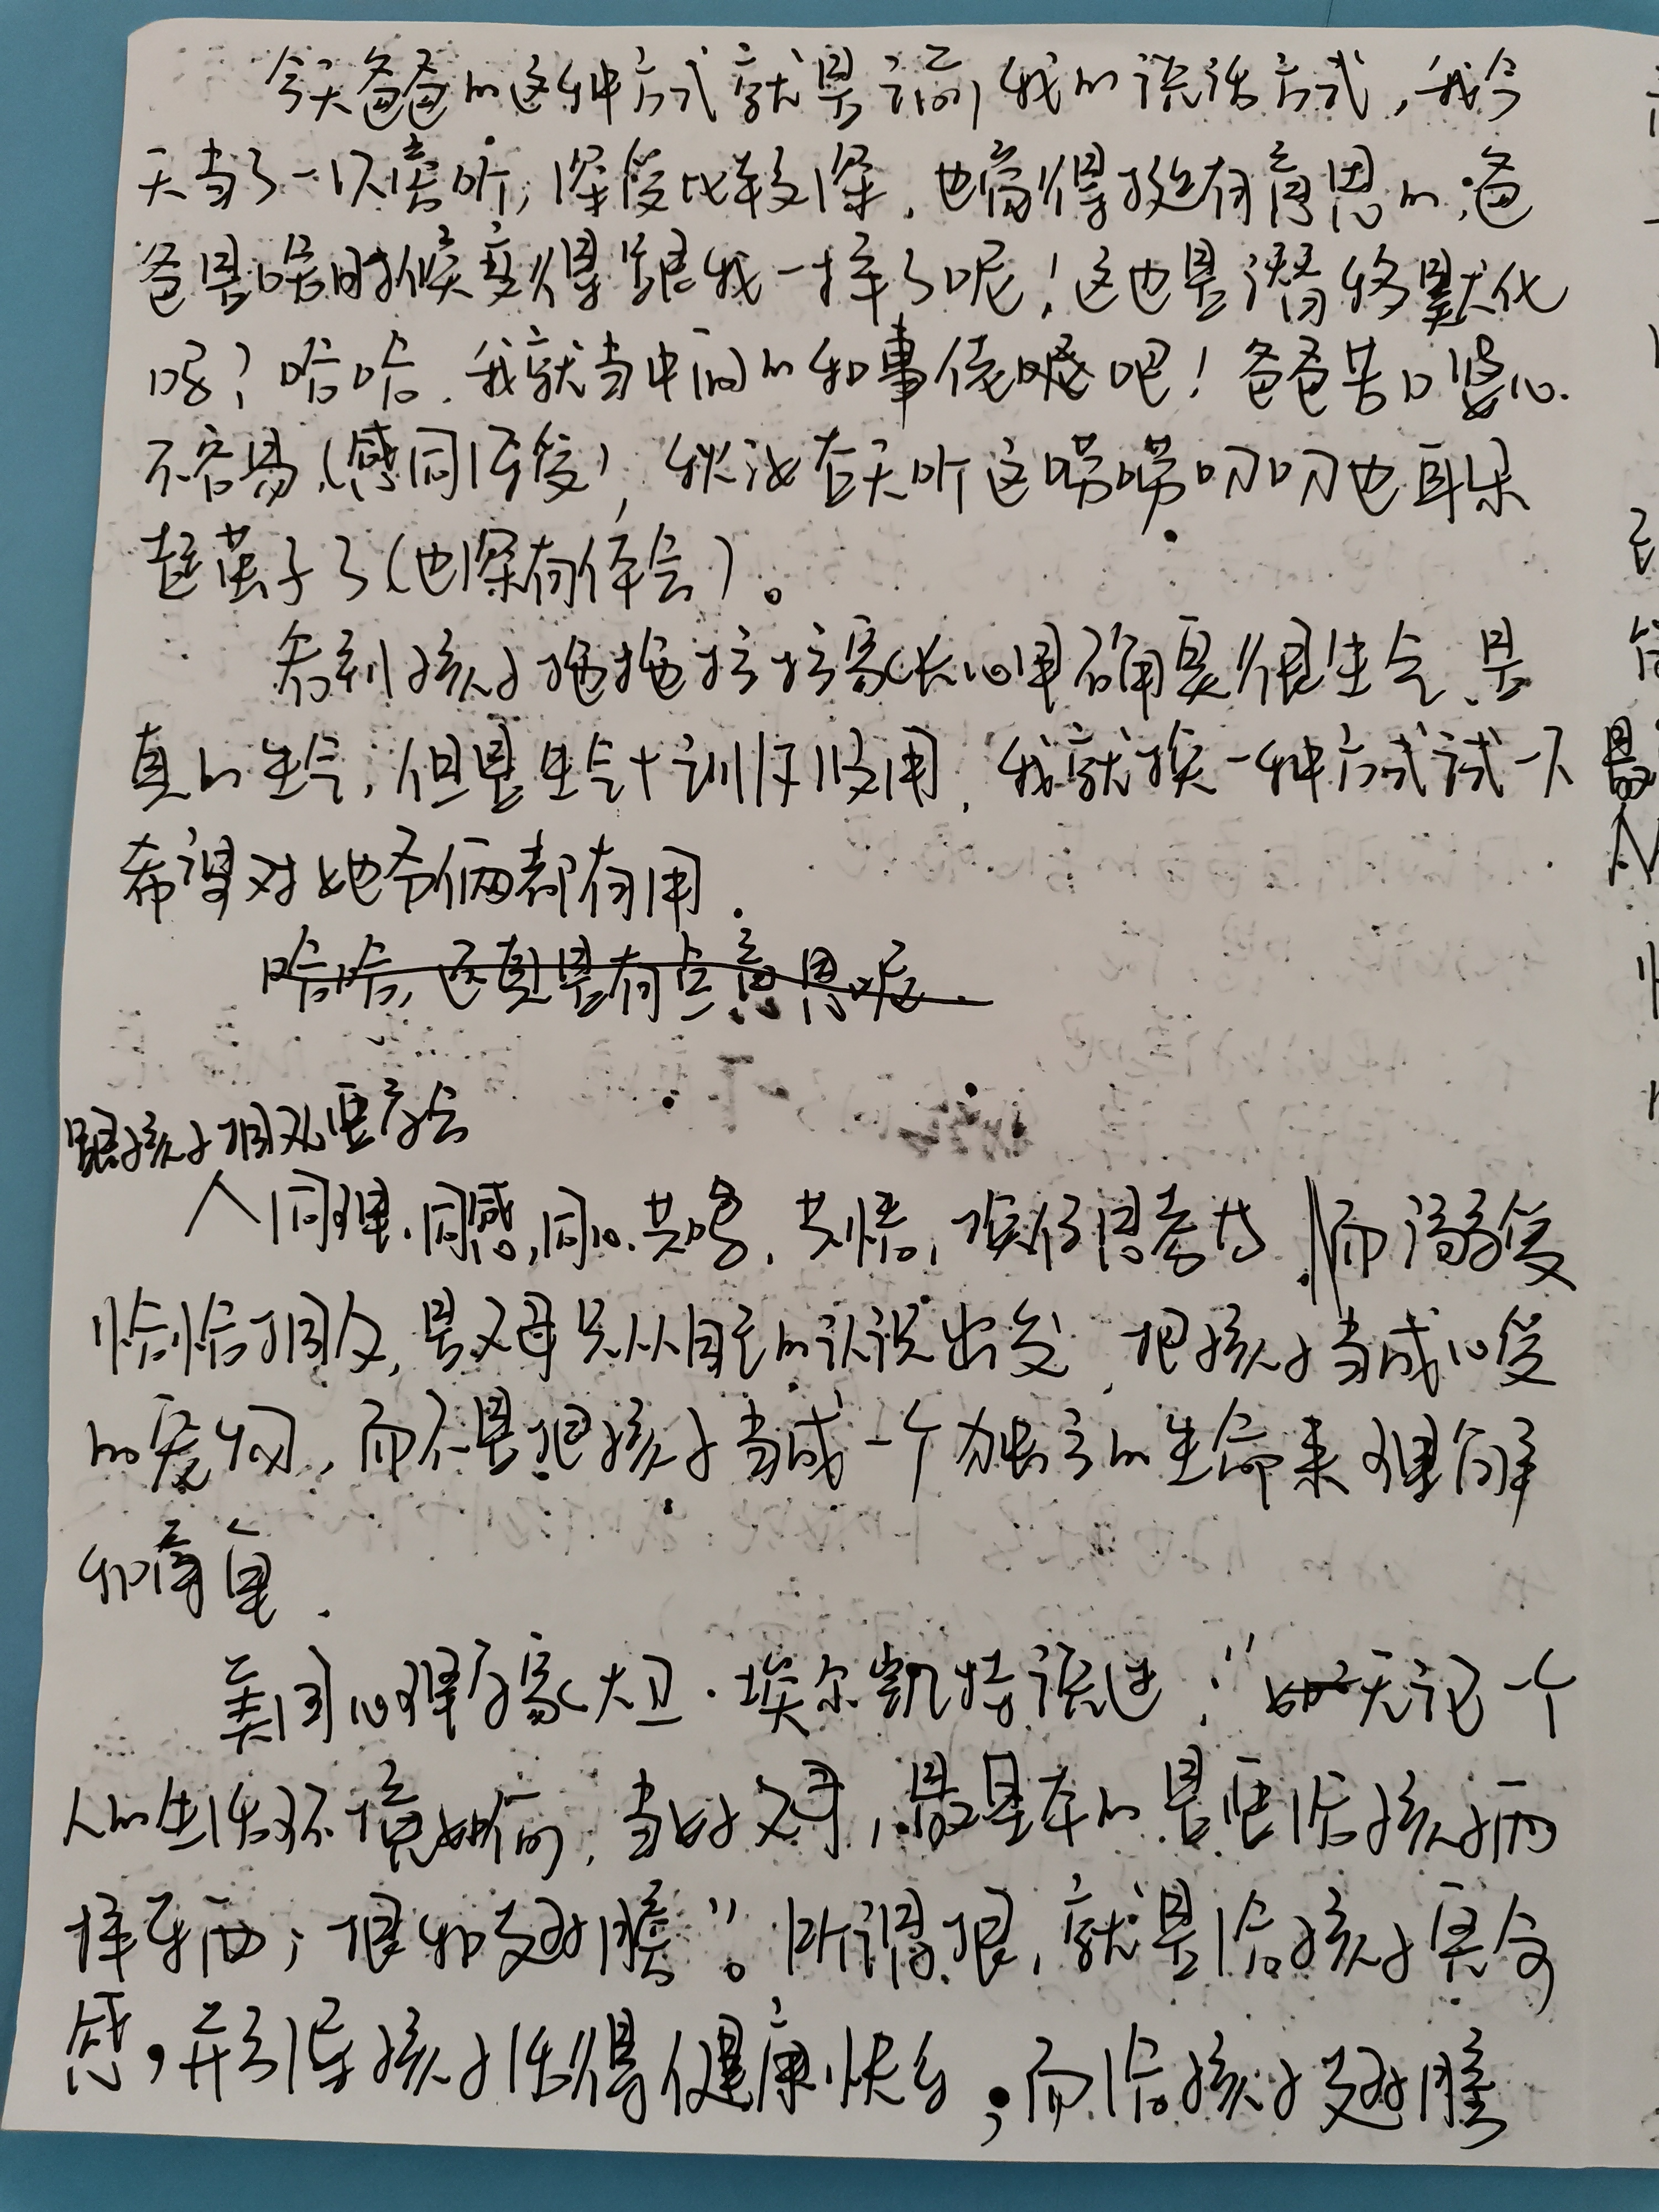 今天爸爸的这种方式就是以前我的说话方式，我今
天当了一次旁听，深度比较深，也觉得挺有意思的，爸
爸是啥时候变得跟我一样了呢！这也是潜移默化
吗？哈哈，我就当中间的和事佬呗吧！爸爸苦口婆心
不容易（感同深受），秋汝在天听这唠唠叨叨也耳朵
起茧子了（也深有体会）。
看到孩子拖拖拉拉家长心里确实很生气，是
真的生气，但是生气+训斥没用，我就换一种方式试一下
希望对她爷俩都有用．
哈哈，还真是有点意思呢．
跟孩子相处要学会
人同理．同感，同心．共鸣．共情，换位思考等．而溺爱
恰恰相反，是父母只从自己的认识出发，把孩子当成心爱
的宠物，而不是把孩子当成一个独立的生命来理解
和尊重．
美国心理学家大卫·埃尔凯特说过：“无论一个
人的生活环境如何，当好父母，最基本的是要给孩子两
样东西；根和翅膀”。所谓根，就是给孩子安全
感，并引导孩子活得健康快乐；而给孩子翅膀